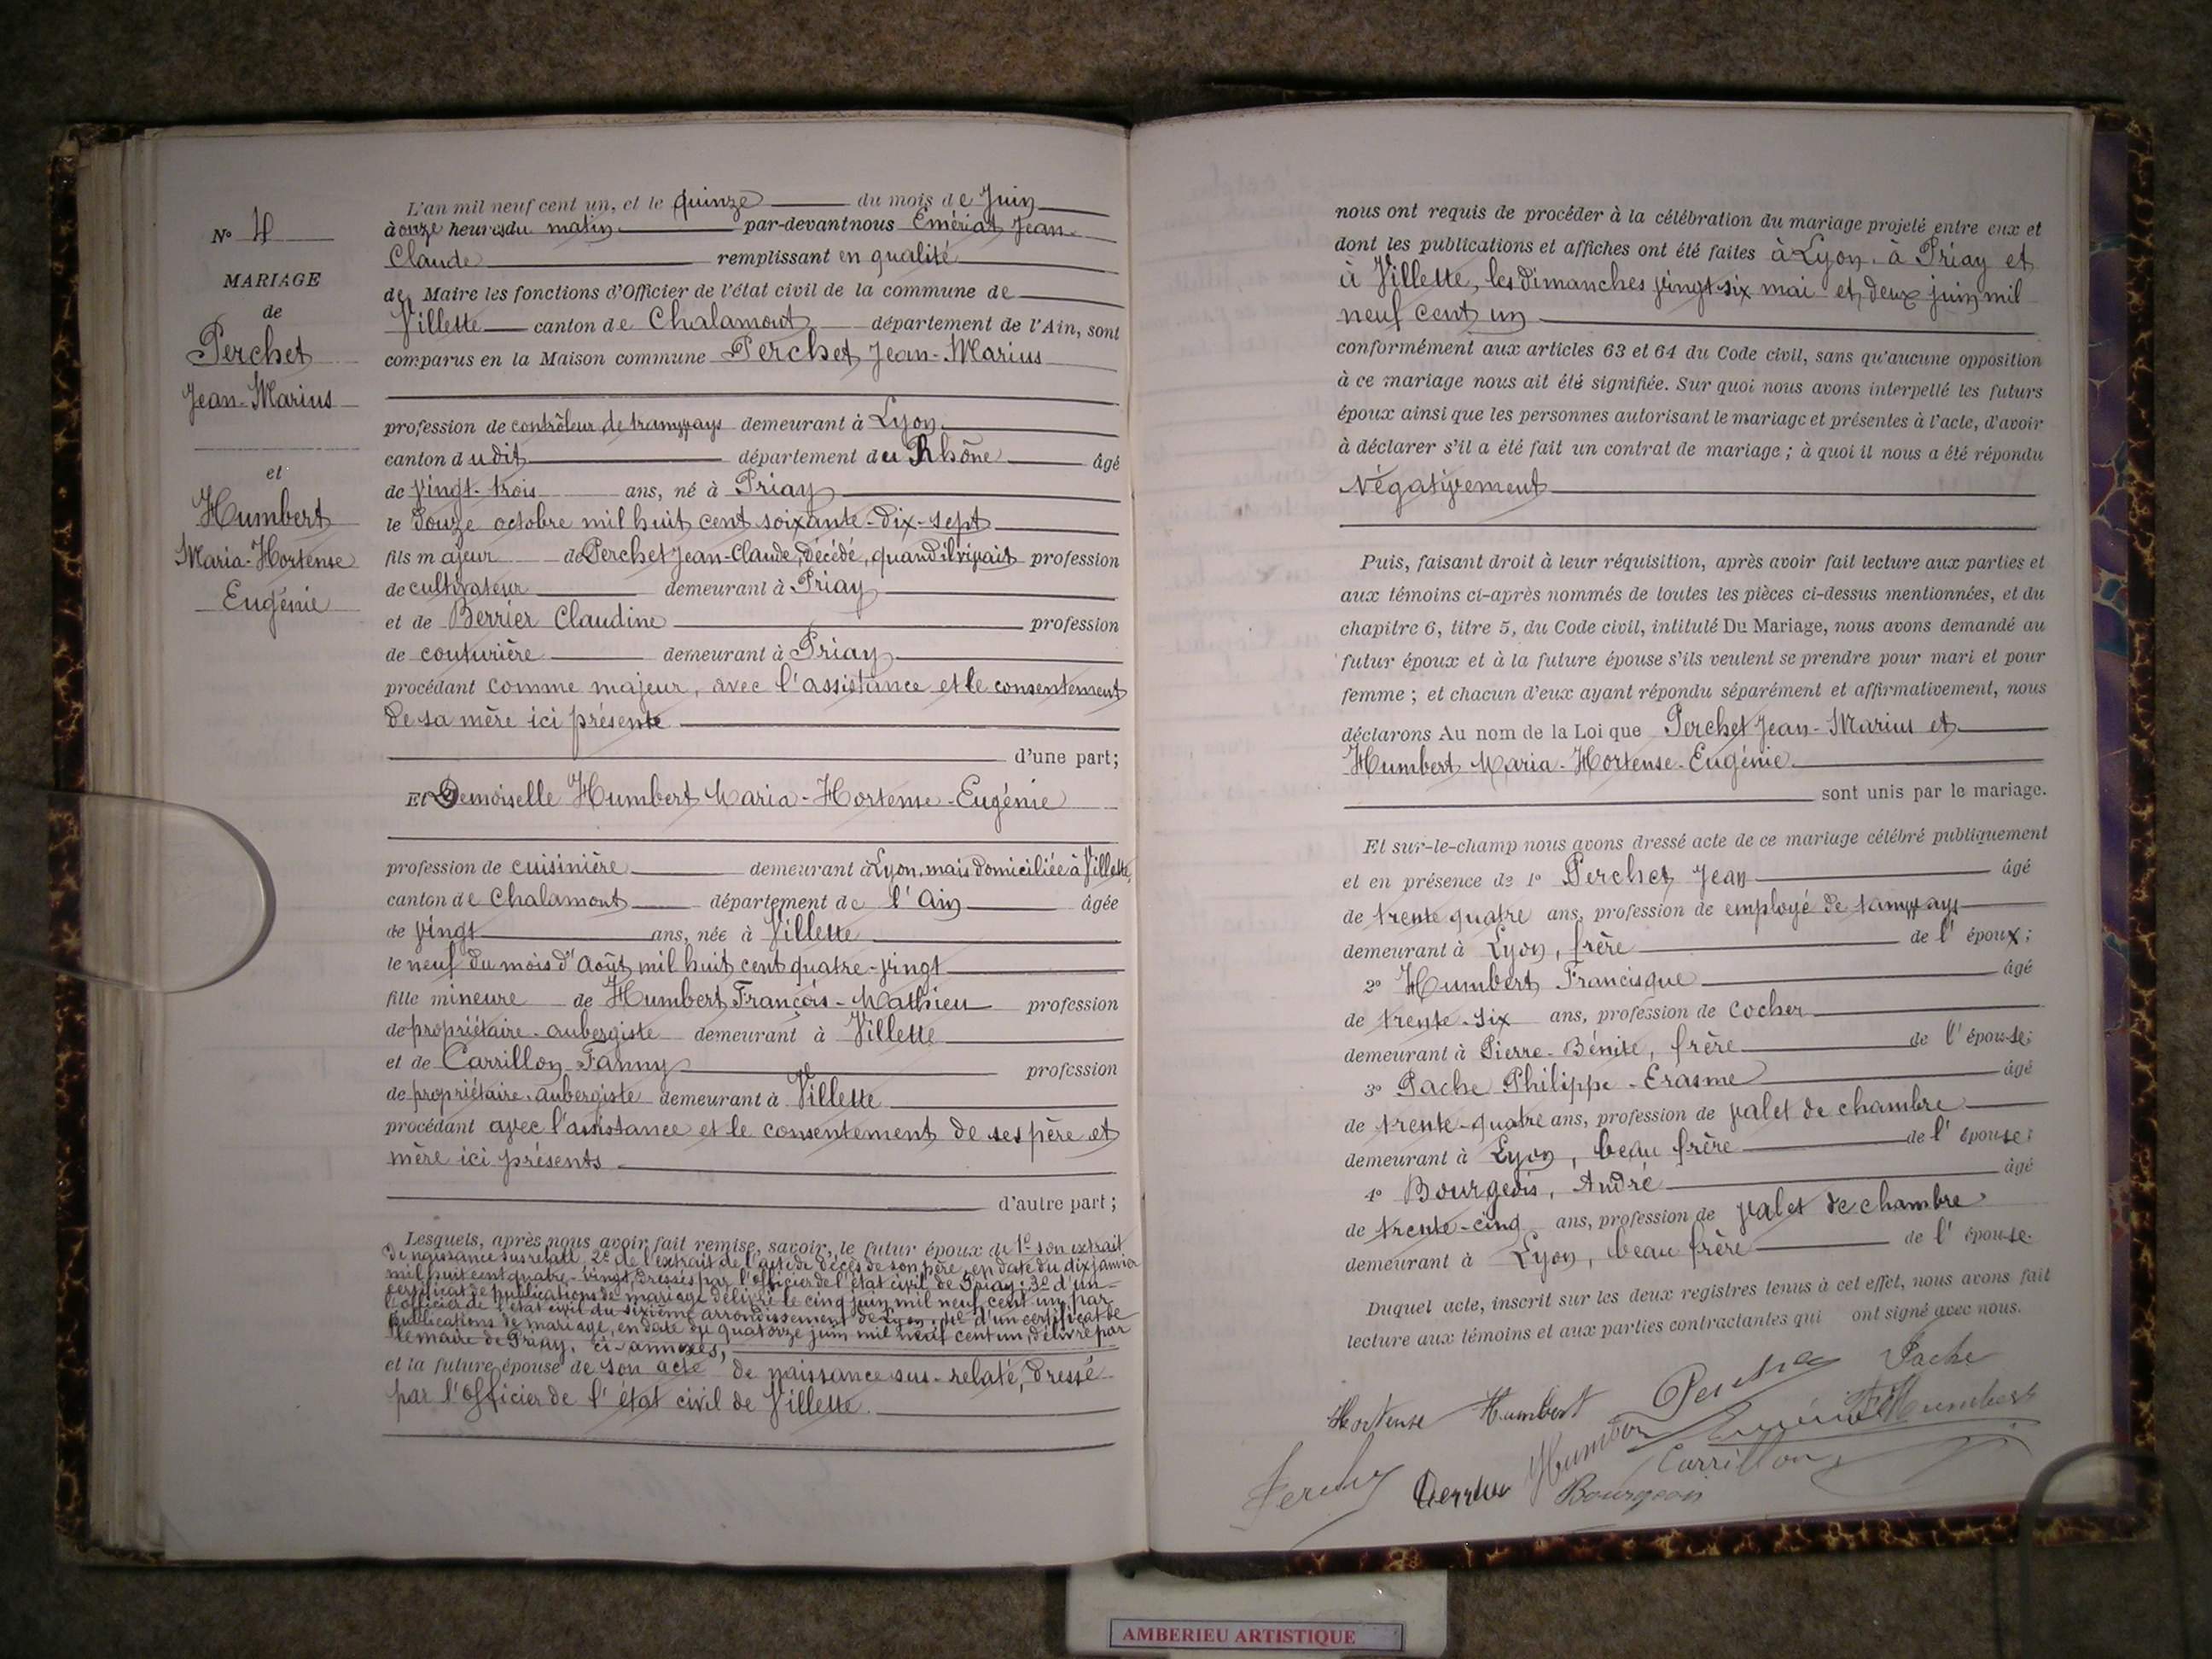 N° 4
MARIAGE
de
Perchet
Jean-Marius
et
Humbert
Maria-Hortense
Eugénie
L'an mil neuf cent un, et le quinze du mois de Juin
à onze heures du matin par-devant nous Émériat Jean-
Claude remplissant en qualité
de Maire les fonctions d'Officier de l'état civil de la commune de
Villette canton de Chalamont département de l'Ain, sont
comparus en la Maison commune Perchet Jean-Marius
profession de contrôleur de tramways demeurant à Lyon
canton dudit département du Rhône âgé
de vingt-trois ans, né à Priay
le douze octobre mil huit cent soixante-dix-sept
fils majeur de Perchet Jean-Claude, décédé, quand il vivait profession
de cultivateur demeurant à Priay
et de Berrier Claudine profession
de couturière demeurant à Priay
procédant comme majeur, avec l'assistance et le consentement
de sa mère ici présente
d'une part;
Et Demoiselle Humbert Maria-Hortense-Eugénie
profession de cuisinière demeurant à Lyon, mais domiciliée à Villette,
canton de Chalamont département de l'Ain âgée
de vingt ans, née à Villette
le neuf du mois d'Août mil huit cent quatre-vingt
fille mineure de Humbert François-Mathieu profession
de propriétaire-aubergiste demeurant à Villette
et de Carrillon Fanny profession
de propriétaire-aubergiste demeurant à Villette
procédant avec l'assistance et le consentement de ses père et
mère ici présents
d'autre part;
Lesquels, après nous avoir fait remise, savoir, le futur époux de 1° son extrait
de naissance susrelaté, 2° de l'extrait de l'acte de décès de son père, en date du dix janvier
mil huit cent quatre-vingt, dressés par l'officier de l'état civil de Priay; 3° d'un
certificat de publications de mariage délivré le cinq juin mil neuf cent un, par
l'officier de l'état civil du sixième arrondissement de Lyon, 4° d'un certificat de
publications de mariage, en date du quatorze juin mil neuf cent un, délivré par
le maire de Priay, ci-annexés,
et la future épouse de son acte de naissance sus-relaté, dressé
par l'Officier de l'état civil de Villette.
nous ont requis de procéder à la célébration du mariage projeté entre eux et
dont les publications et affiches ont été faites à Lyon, à Priay et
à Villette, les dimanches vingt six mai et deux juin mil
neuf cent un
conformément aux articles 63 et 64 du Code civil, sans qu'aucune opposition
à ce mariage nous ait été signifiée. Sur quoi nous avons interpellé les futurs
époux ainsi que les personnes autorisant le mariage et présentes à l'acte, d'avoir
à déclarer s'il a été fait un contrat de mariage; à quoi il nous a été répondu
Négativement
Puis, faisant droit à leur réquisition, après avoir fait lecture aux parties et
aux témoins ci-après nommés de toutes les pièces ci-dessus mentionnées, et du
chapitre 6, titre 5, du Code civil, intitulé Du Mariage, nous avons demandé au
futur époux et à la future épouse s'ils veulent se prendre pour mari et pour
femme; et chacun d'eux ayant répondu séparément et affirmativement, nous
déclarons Au nom de la Loi que Perchet Jean-Marius et
Humbert Maria-Hortense-Eugénie
sont unis par le mariage.
Et sur-le-champ nous avons dressé acte de ce mariage célébré publiquement
et en présence de 1° Perchet Jean âgé
de trente quatre ans, profession de employé de tamways
demeurant à Lyon, frère de l'époux;
2° Humbert Francisque âgé
de trente-six ans, profession de cocher
demeurant à Pierre-Bénite, frère de l'épouse;
3° Pache Philippe-Erasme âgé
de trente-quatre ans, profession de valet de chambre
demeurant à Lyon, beau frère de l'épouse;
4° Bourgeois, André âgé
de trente-cinq ans, profession de valet de chambre
demeurant à Lyon, beau frère de l'épouse.
Duquel acte, inscrit sur les deux registres tenus à cet effet, nous avons fait
lecture aux témoins et aux parties contractantes qui ont signé avec nous.
Hortense Humbert Perchet Pache
Humbert Humbert
Perchet Berrier Carrillon
Bourgeois
AMBERIEU ARTISTIQUE